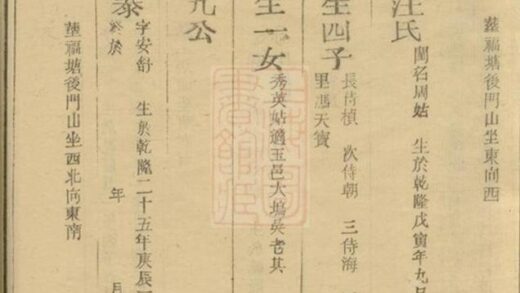 塟福塘後門山坐東向西
汪氏 閨名周姑 生於乾隆戊寅年九月
生四子 長侍楨 次侍朝 三侍海
里馮天寶
生一女 秀英姑適玉邑大塢吳老其
公
泰 字安舒 生於乾隆二十五年庚辰
終於 年 月
塟福塘後門山坐西北向東南